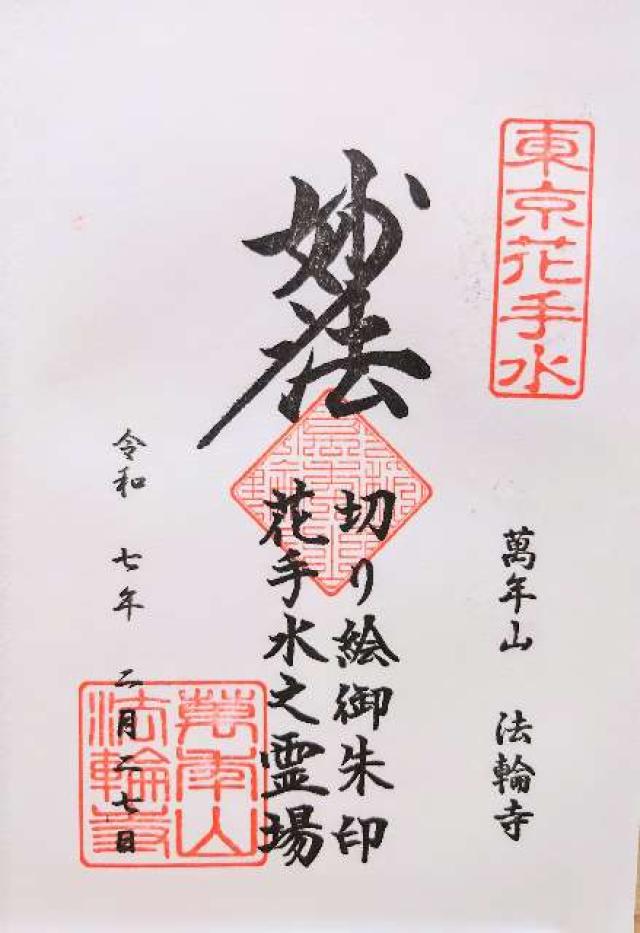 東京花手水
萬年山 法輪寺
妙法
切り絵御朱印
花手水之霊場
令和 七年 二月二七日
萬年山
法輪寺